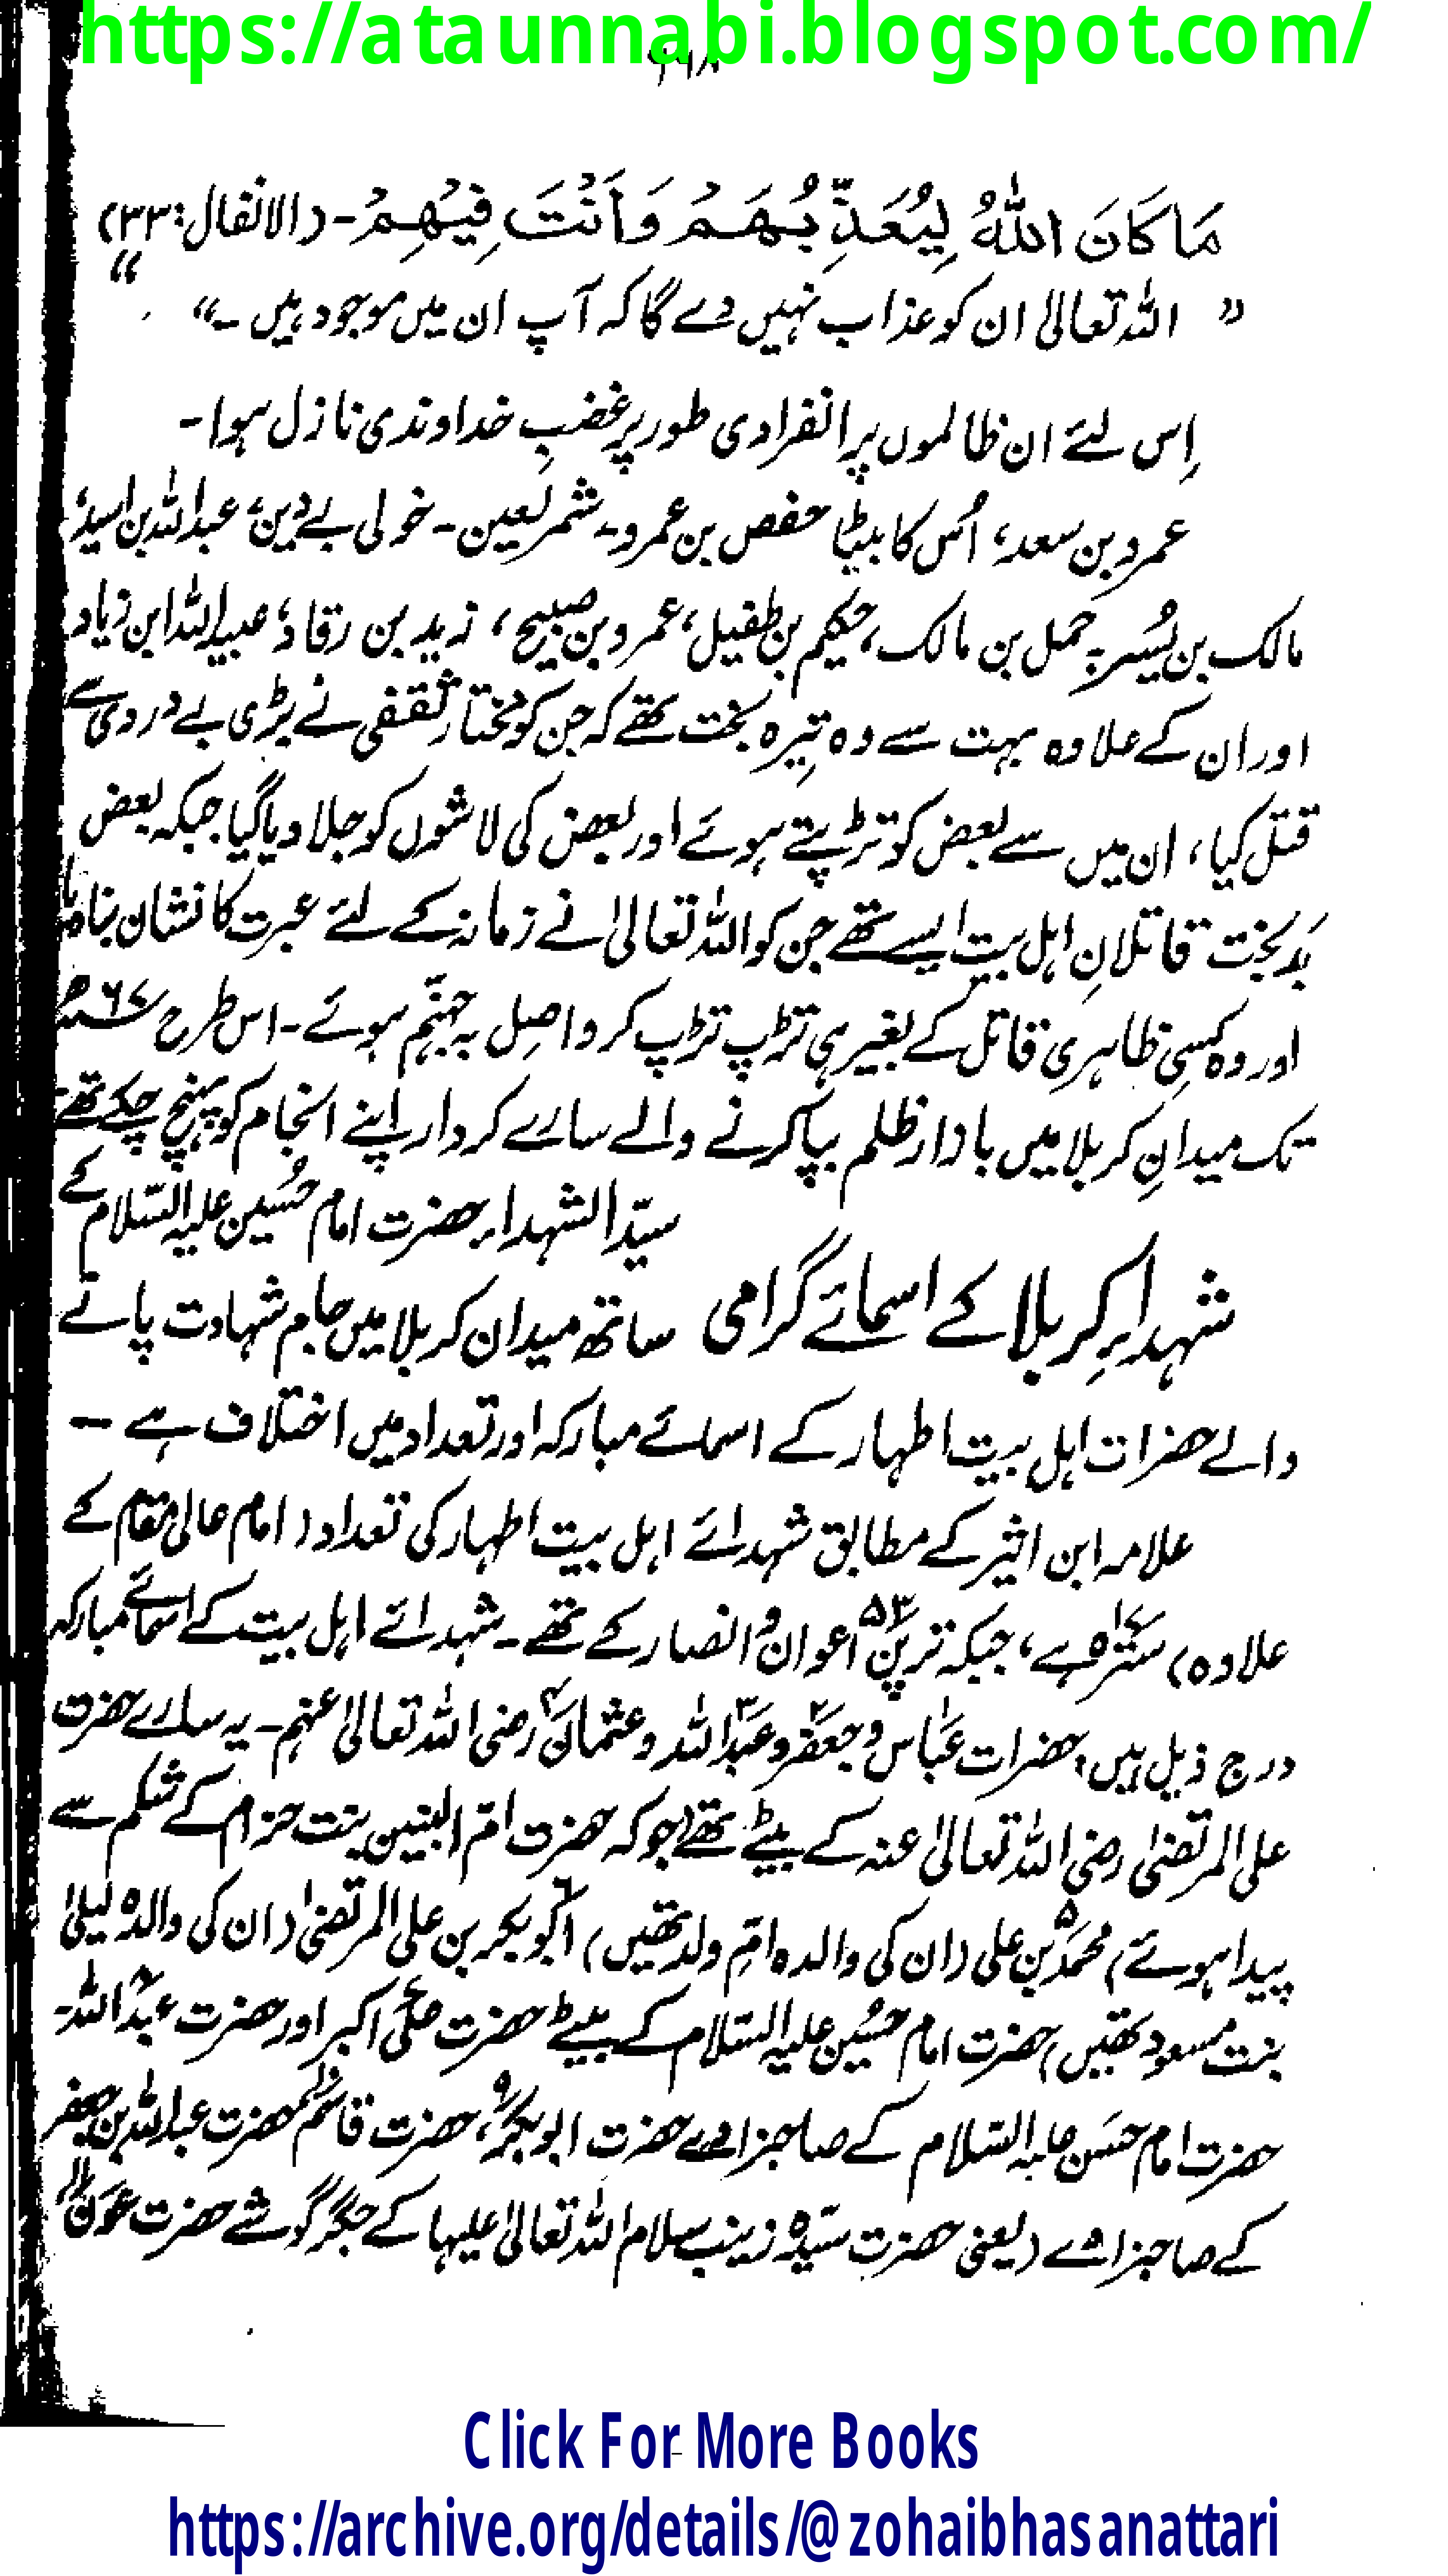 https://ataunnabi.blogspot.com/
۶۶۸
مَا كَانَ اللّٰهُ لِيُعَذِّبُهَمُ وَاَنْتَ فِيْهِمُ۔ (الانفال: ۳۳)
” اللہ تعالیٰ ان کو عذاب نہیں دے گا کہ آپ ان میں موجود ہیں ۔“
اِس لئے ان ظالموں پر انفرادی طور پر غضبِ خداوندی نازل ہوا۔
عمرو بن سعد، اُس کا بیٹا حفص بن عمرو۔ شمر لعین۔ خولی بے دین، عبداللہ بن اسید،
مالک بن یُسر۔ حمل بن مالک، حکیم بن طفیل، عمرو بن صبیح، زید بن رقاد، عبیداللہ ابن زیاد
اور ان کے علاوہ بہت سے وہ تیرہ بخت تھے کہ جن کو مختار ثقفی نے بڑی بے دردی سے
قتل کیا، ان میں سے بعض کو تڑپتے ہوئے اور بعض کی لاشوں کو جلا دیا گیا جبکہ بعض
بَدبخت قاتلانِ اہل بیت ایسے تھے جن کو اللہ تعالیٰ نے زمانہ کے لئے عبرت کا نشان بنا دیا
اور وہ کسی ظاہری قاتل کے بغیر ہی تڑپ تڑپ کر واصِل بہ جہنّم ہوئے۔ اس طرح ۶۷ھ
تک میدانِ کربلا میں بازارِ ظلم بپا کرنے والے سارے کردار اپنے انجام کو پہنچ چکے تھے
شہداءِ کربلا کے اسمائے گرامی
سیّد الشہداء حضرت امام حُسین علیہ السّلام کے
ساتھ میدان کربلا میں جام شہادت پانے
والے حضرات اہل بیت اطہار کے اسمائے مبارکہ اور تعداد میں اختلاف ہے ۔
علامہ ابن اثیر کے مطابق شہدائے اہل بیت اطہار کی تعداد (امام عالی مقام کے
علاوہ) سترہ ۱۷ ہے، جبکہ ترپن ۵۳ اعوان و انصار کے تھے۔ شہدائے اہل بیت کے اسمائے مبارکہ
درج ذیل ہیں، حضرات عباس ۱ و جعفر ۲ و عبداللہ ۳ و عثمان ۴ رضی اللہ تعالیٰ عنہم۔ یہ سارے حضرت
علی المرتضیٰ رضی اللہ تعالیٰ عنہ کے بیٹے تھے (جو کہ حضرت امّ البنین بنت حزام کے شکم سے
پیدا ہوئے) محمد ۵ بن علی (ان کی والدہ امّ ولد تھیں) ابوبکر ۶ بن علی المرتضیٰ (ان کی والدہ لیلیٰ
بنت مسعود تھیں) حضرت امام حسُین علیہ السّلام کے بیٹے حضرت علی ۷ اکبر اور حضرت عبداللہ ۸۔
حضرت امام حسَن علیہ السّلام کے صاحبزادے حضرت ابوبکر ۹، حضرت قاسم ۱۰ حضرت عبداللہ بن جعفر
کے صاحبزادے (یعنی حضرت سیّدہ زینب سلام اللہ تعالیٰ علیہا کے جگر گوشے حضرت عون ۱۱،
Click For More Books
https://archive.org/details/@zohaibhasanattari